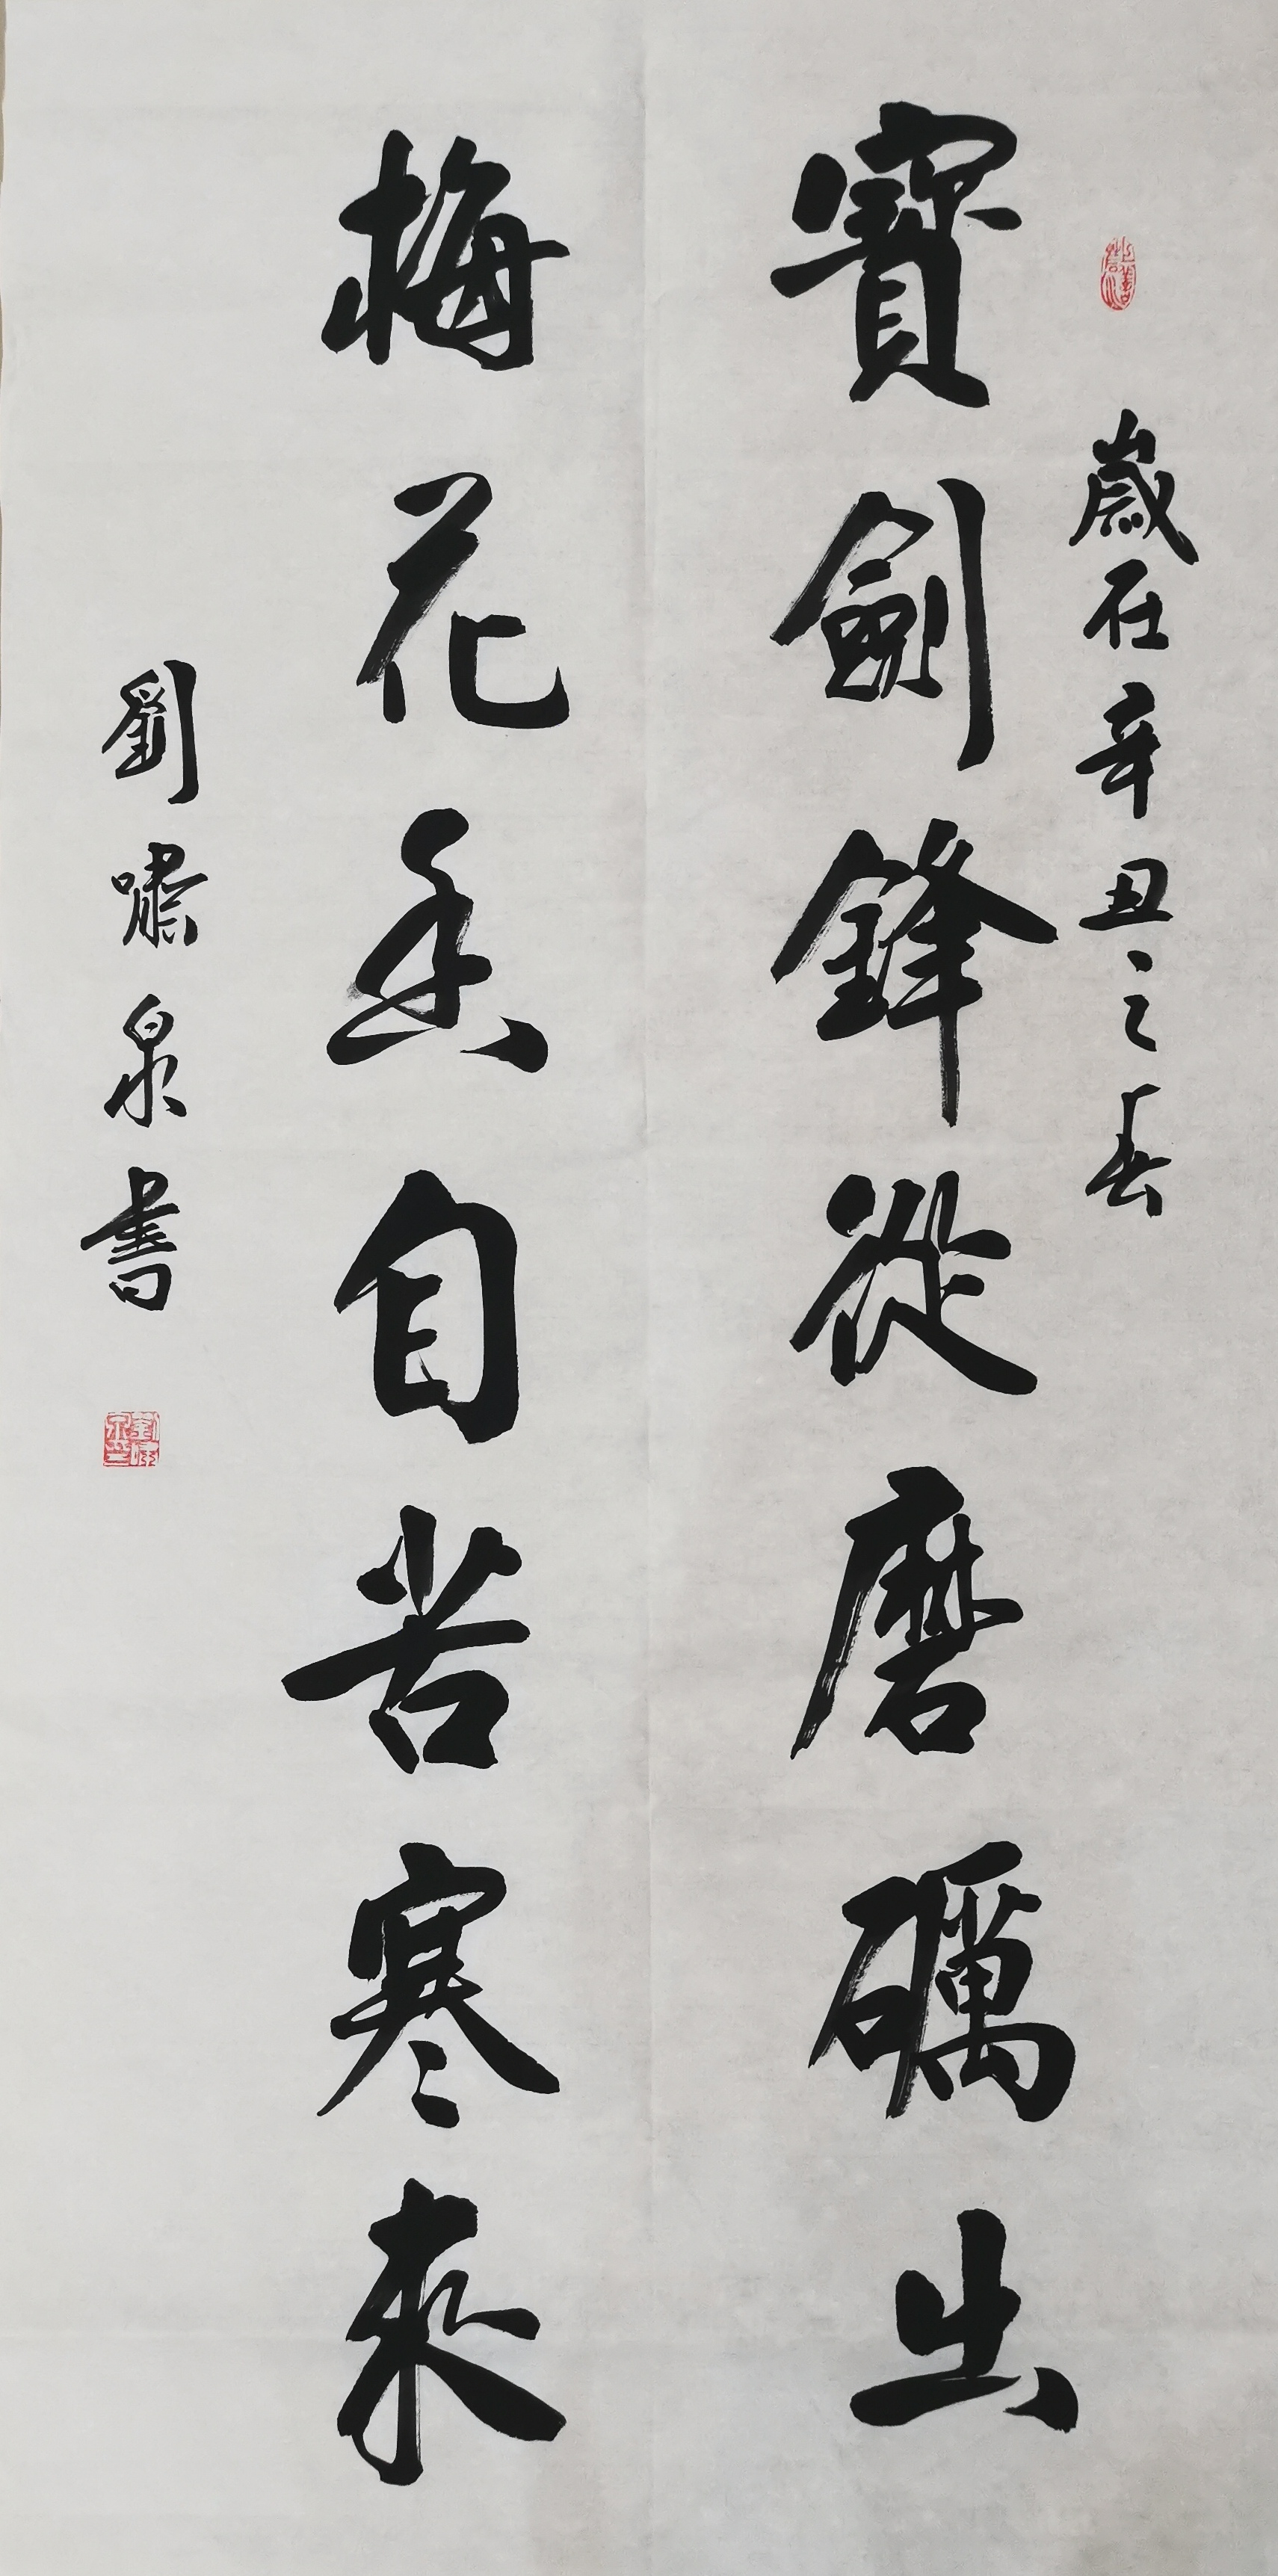 歲在辛丑之春
寶劍鋒從磨礪出
梅花香自苦寒來
劉嘯泉書